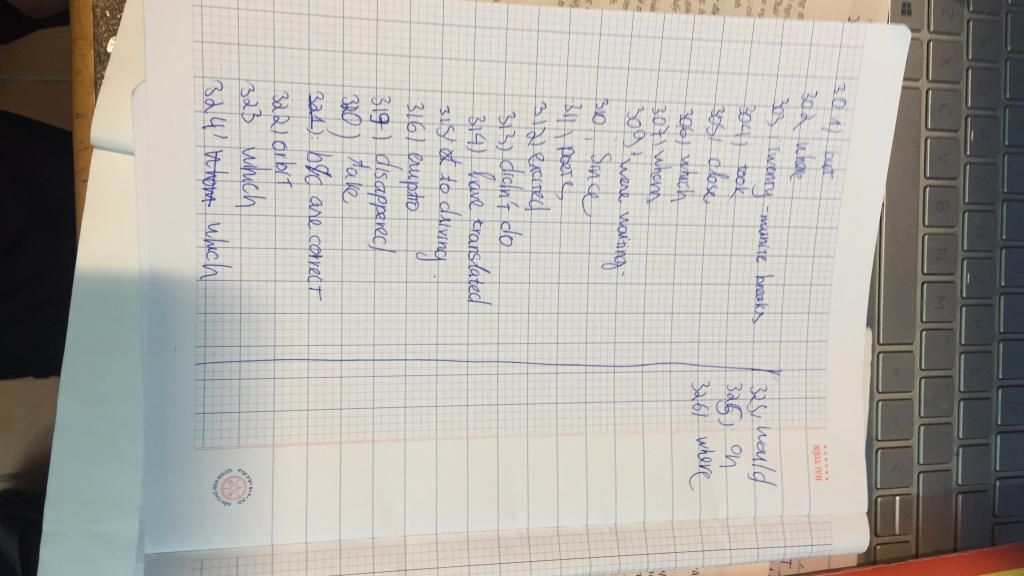 301) but
302) were
303) twenty-munite breaks
304) took
305) above
306) which
307) whom
309) were waiting.
310, Since
311, Poore,
312) exated
313) didn't do
314) have translated
315) to driving.
316) eruptio
319) disappeared
320) take
321) b%c are correct
322) orbit
323 which
324) which
325, would
325) on
326) where
HẢI TIẾN